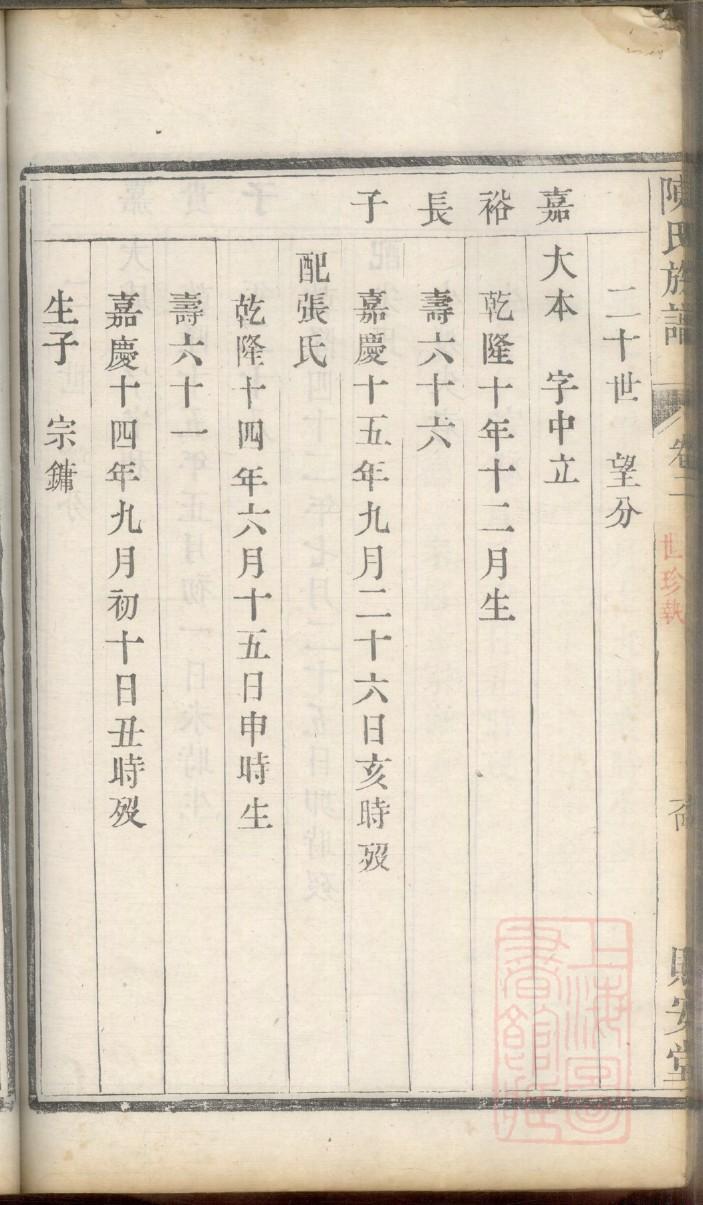 陳氏族譜 卷二
世珍執
賜安堂
二十世 望分
嘉裕長子
大本 字中立
乾隆十年十二月生
壽六十六
嘉慶十五年九月二十六日亥時歿
配張氏
乾隆十四年六月十五日申時生
壽六十一
嘉慶十四年九月初十日丑時歿
生子 宗鏞
上海圖書館藏